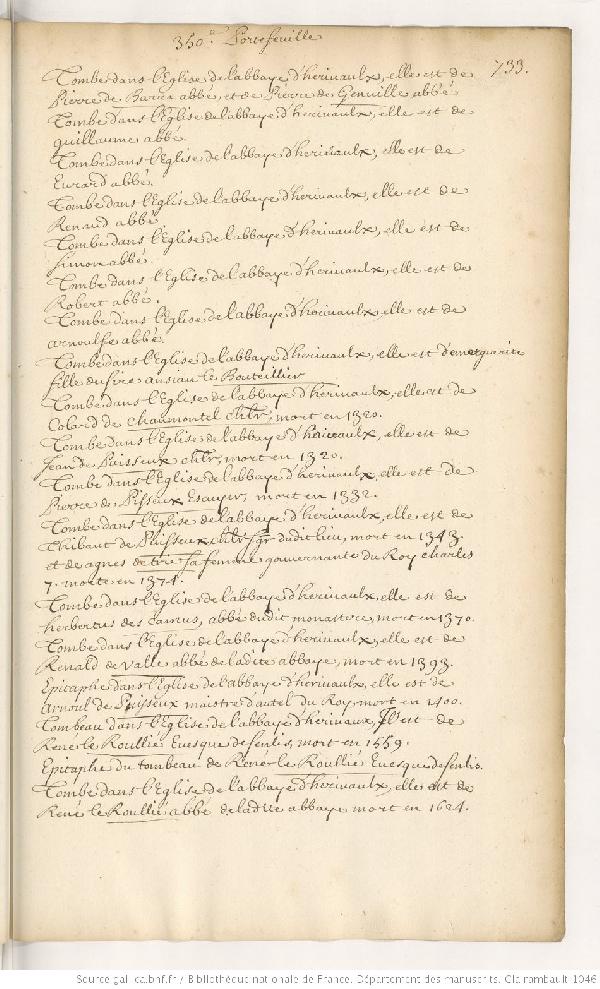 350.e Portefeuille
733.
Tombe dans l'Eglise de l'abbaye d'herivaulx, elle est de
Pierre de abbé, et de Pierre de Genville abbé
Tombe dans l'Eglise de l'abbaye d'herivaulx, elle est de
guillaume abbé
Tombe dans l'Eglise de l'abbaye d'herivaulx, elle est de
Evrard abbé
Tombe dans l'Eglise de l'abbaye d'herivaulx, elle est de
Renaud abbé
Tombe dans l'Eglise de l'abbaye d'herivaulx, elle est de
Simon abbé.
Tombe dans l'Eglise de l'abbaye d'herivaulx, elle est de
Robert abbé.
Tombe dans l'Eglise de l'abbaye d'herivaulx, elle est de
arnoulfe abbé.
Tombe dans l'Eglise de l'abbaye d'herivaulx, elle est d'emerguarite
fille du sire ansiau le Bouteillier
Tombe dans l'Eglise de l'abbaye d'herivaulx, elle est de
Colard de Chaumontel chlr, mort en 1320.
Tombe dans l'Eglise de l'abbaye d'herivaulx, elle est de
Jean de Puisseux chlr, mort en 1320.
Tombe dans l'Eglise de l'abbaye d'herivaulx, elle est de
Pierre de Pisseux Escuyer, mort en 1332.
Tombe dans l'Eglise de l'abbaye d'herivaulx, elle est de
Thibaut de Puisseux chlr sgr dudit lieu, mort en 1343.
et de agnes de trie sa femme gouvernante du Roy Charles
7. morte en 1371.
Tombe dans l'Eglise de l'abbaye d'herivaulx, elle est de
herbertus des camus, abbé dudit monastere, mort en 1370.
Tombe dans l'Eglise de l'abbaye d'herivaulx, elle est de
Renald de Valle abbé de ladite abbaye, mort en 1393.
Epitaphe dans l'Eglise de l'abbaye d'herivaulx, elle est de
arnoul de Puisseux maistre d'autel du Roy, mort en 1400.
Tombeau dans l'Eglise de l'abbaye d'herivaux, Il est de
René le Roullié Evesque de senlis, mort en 1559.
Epitaphe du tombeau de René le Roullié Evesque de senlis.
Tombe dans l'Eglise de l'abbaye d'herivaulx, elle est de
René le Roullié abbé de ladite abbaye mort en 1624.
Source gallica.bnf.fr / Bibliothèque nationale de France. Département des manuscrits. Clairambault 1046